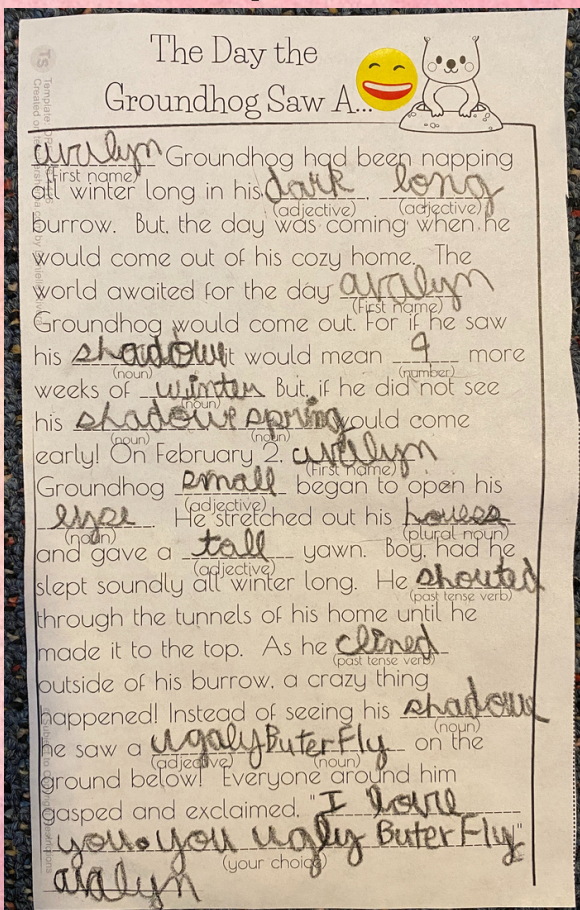 The Day the
Groundhog Saw A...
avalyn Groundhog had been napping
(First name)
all winter long in his dark, long
(adjective) (adjective)
burrow. But, the day was coming when he
would come out of his cozy home. The
world awaited for the day avalyn
(First name)
Groundhog would come out. For if he saw
his shadowe it would mean 9 more
(noun) (number)
weeks of winter But, if he did not see
(noun)
his shadowe spring would come
(noun) (noun)
early! On February 2, avalyn
(First name)
Groundhog small began to open his
(adjective)
eyse. He stretched out his houses
(noun) (plural noun)
and gave a tall yawn. Boy, had he
(adjective)
slept soundly all winter long. He shouted
(past tense verb)
through the tunnels of his home until he
made it to the top. As he clined
(past tense verb)
outside of his burrow, a crazy thing
happened! Instead of seeing his shadowe
(noun)
he saw a ugaly Buter Fly on the
(adjective) (noun)
ground below! Everyone around him
gasped and exclaimed, "I love
you. you ugly Buter Fly"
(your choice)
avalyn